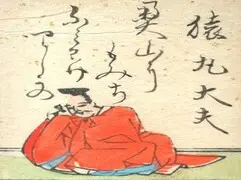 猿丸大夫
奥山に
もみち
ふみわけ